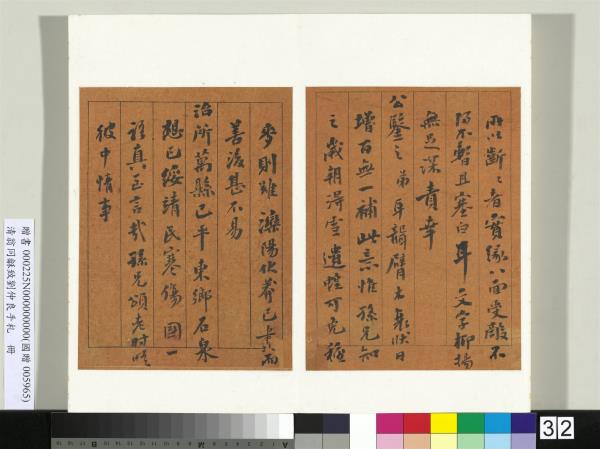 所以斷之者實緣八面受敵不
得不暫且塞白耳文字抑揚
無足深責幸
公鑒之弟耳聾臂木衰狀日
增百無一補此意惟孫兄知
之歲朝得雪遺蝗可免種
麥則難濼陽伏莽已
善後甚不易
治所萬縣已平東鄉石泉
想已綏靖民塞傷國一
誰真正言哉孫兄頌老時晤
彼中情事
贈書 000225N000000000(國贈 005965)
清翁同龢致劉仲良手札 冊
32